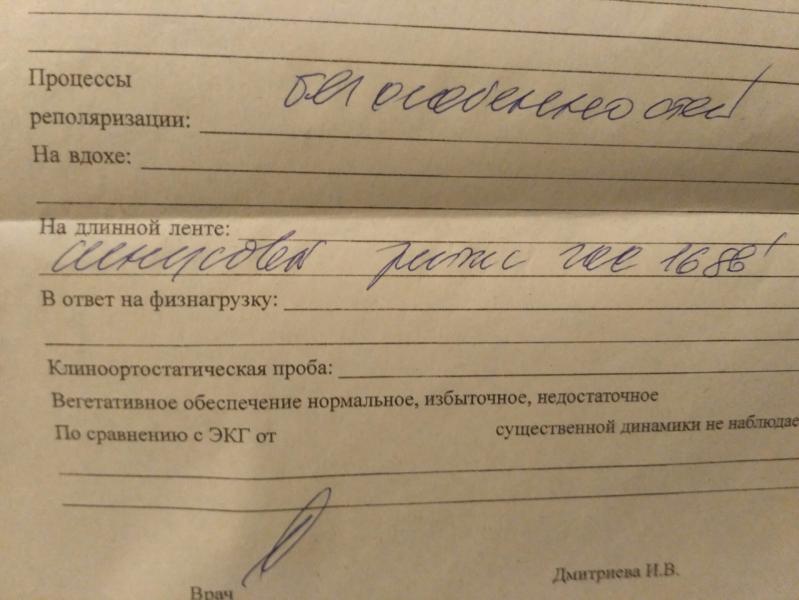 Процессы
реполяризации: без особенностей
На вдохе:
На длинной ленте:
синусовый ритм чсс
В ответ на физнагрузку:
Клиноортостатическая проба:
Вегетативное обеспечение нормальное, избыточное, недостаточное
По сравнению с ЭКГ от существенной динамики не наблюдае
Врач Дмитриева И.В.